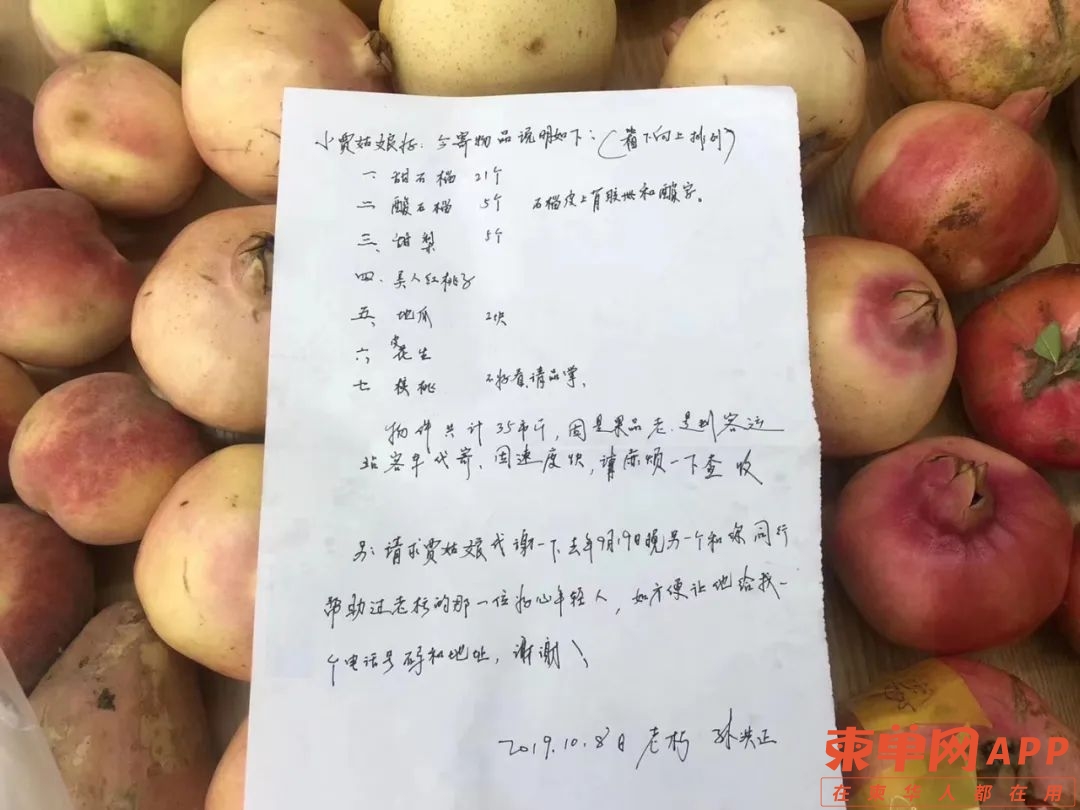 小贾姑娘好：今寄物品说明如下：（着下向上排列）
一、甜石榴 21个
二、酸石榴 5个 石榴皮上有胶带和酸字。
三、甜梨 5个
四、美人红桃子
五、地瓜 2块
六、花生
七、核桃 不好看请品尝。
物件共计35市斤，因是果品老 是到客运
站客车代寄、因速度快，请麻烦一下查收
另：请求贾姑娘代谢一下去年9月19日晚另一个和你同行
帮助过老朽的那一位好心年轻人，如方便让他给我一
个电话号码和地址，谢谢！
2019.10.8日 老朽 孙洪正
柬单网APP
在柬华人都在用